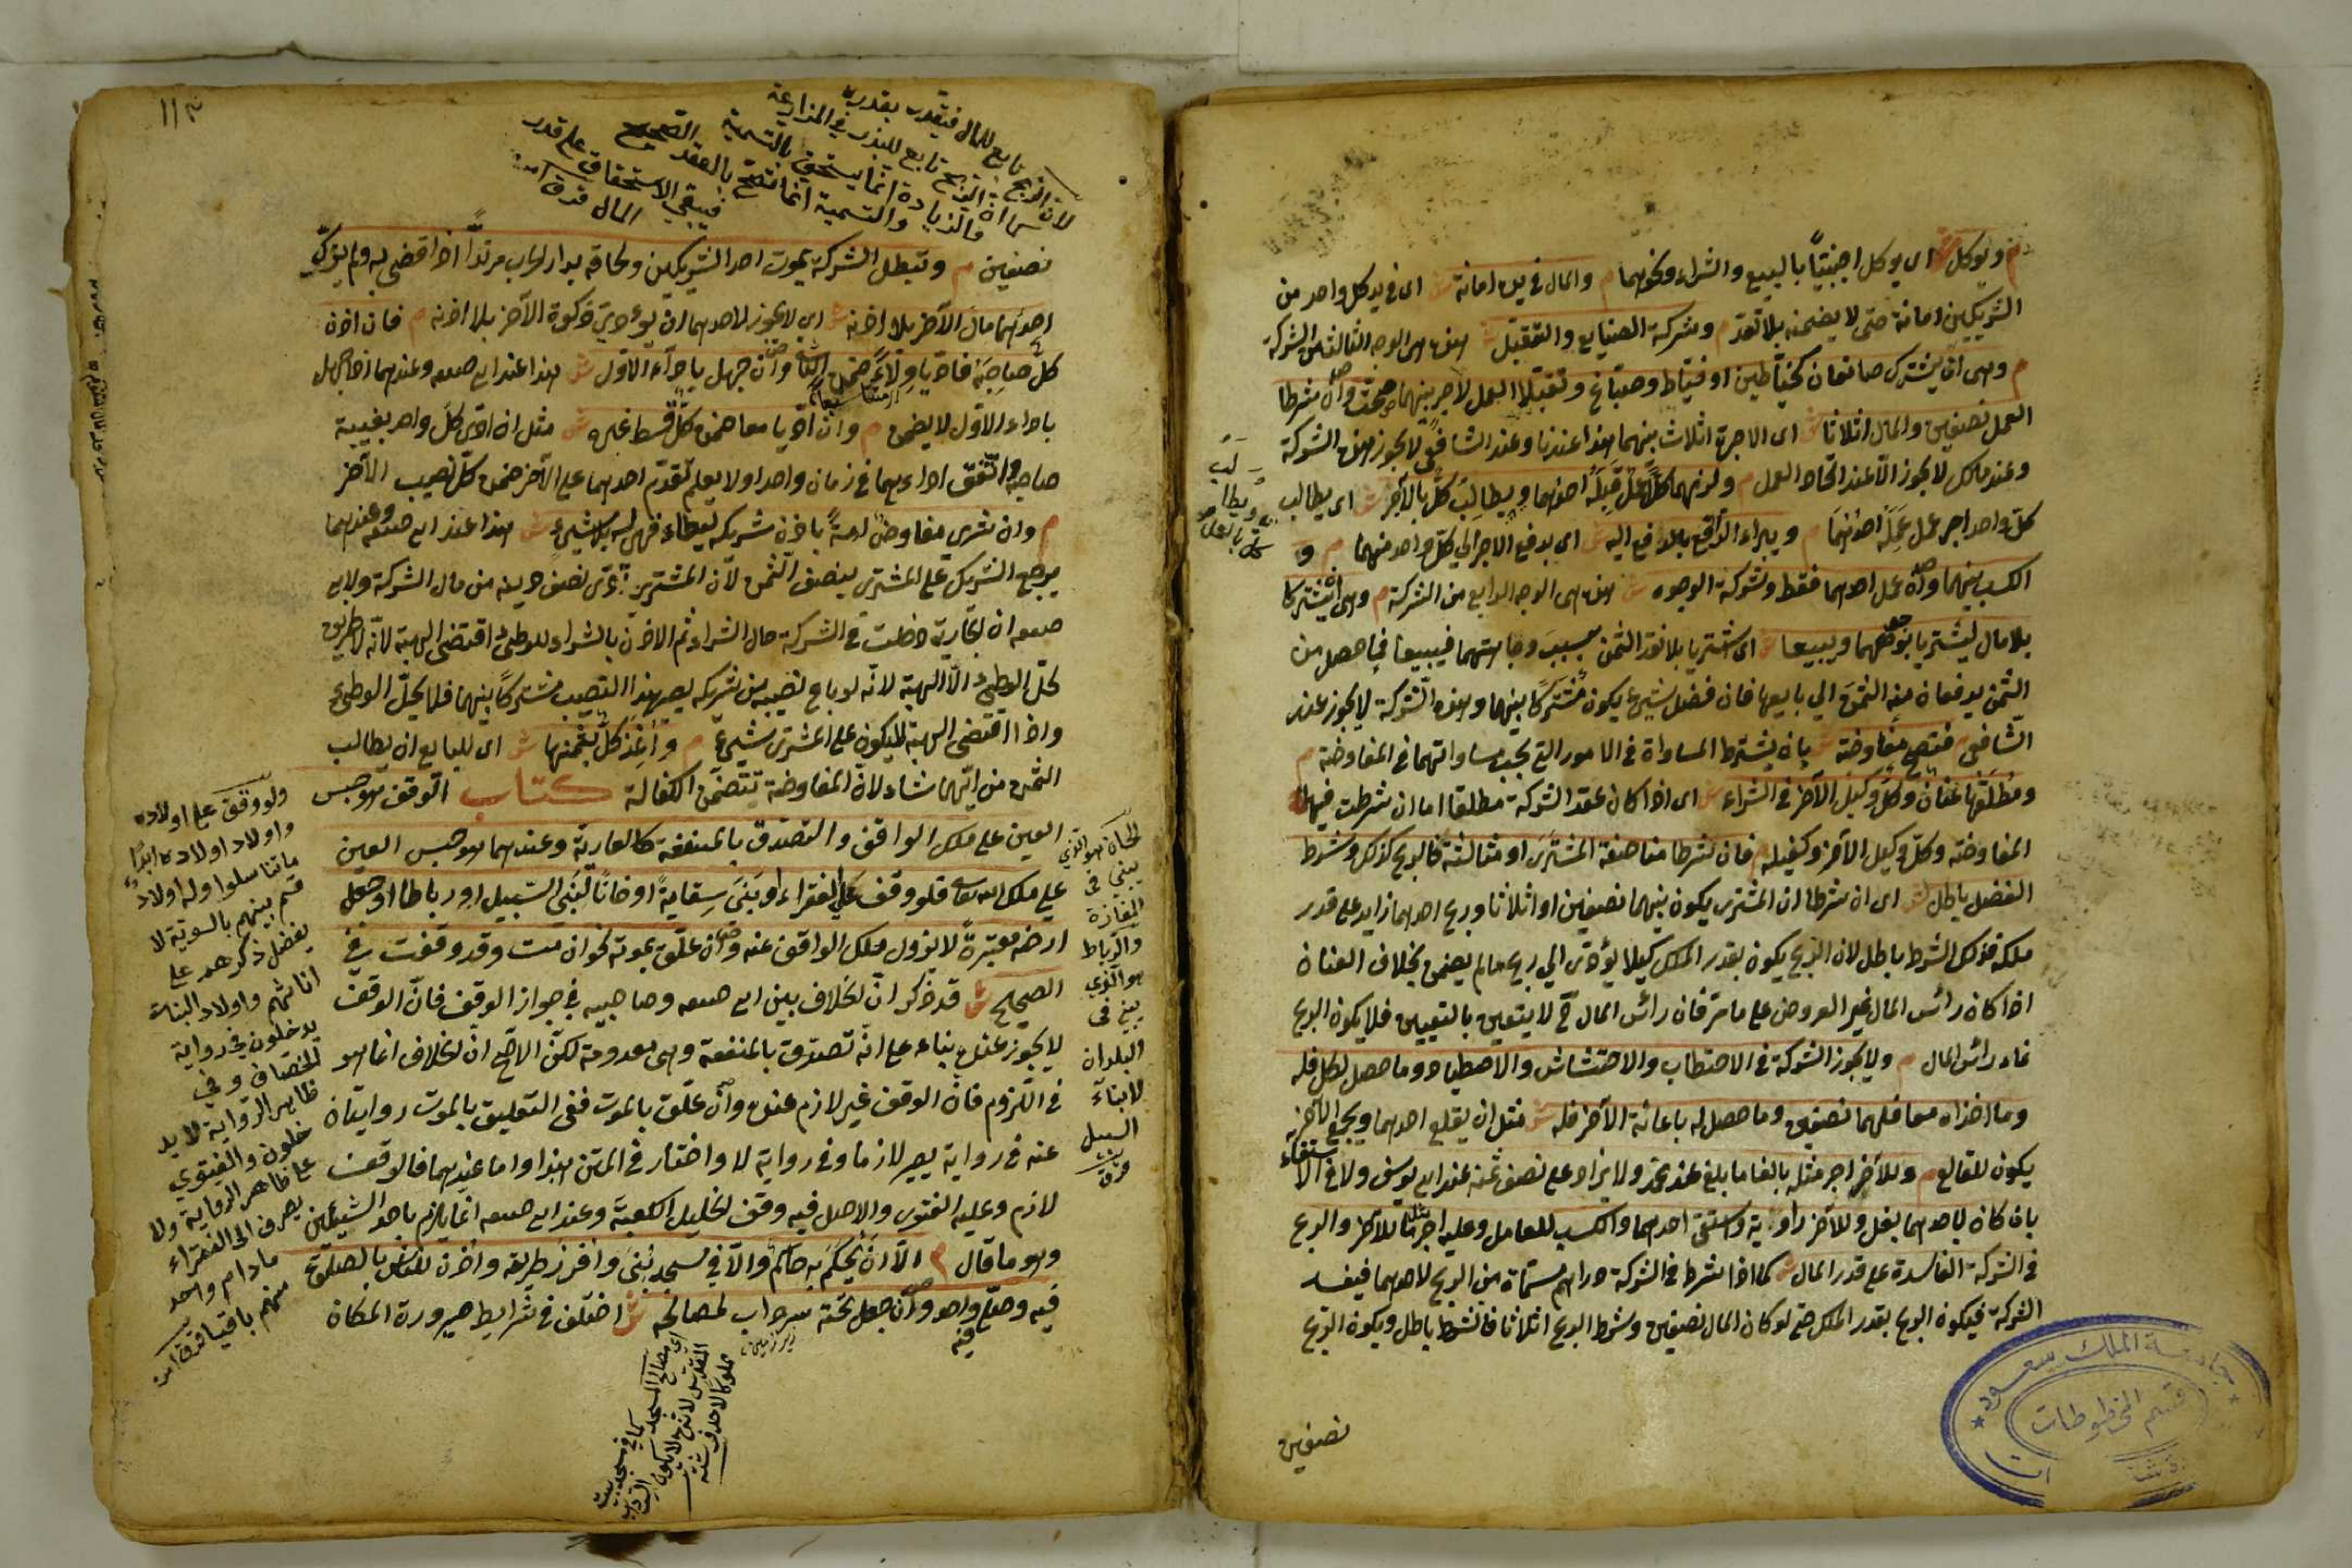 م ويوكل ش اى يوكل اجنبيًّا بالبيع والشراء ونحوهما م والمال فى يده امانة ش اى فى يد كل واحد من
الشريكين امانة حتى لا يضمنه بلا تعدّ م وشركة الصنايع والتقبّل ش هذه هى الوجه الثالث من الشركة
م وهى ان يشترك صانعان كخيّاطين او خيّاط وصبّاغ وتقبّلا العمل لاجر بينهما صحّت وان شرطا
العمل نصفين والمال اثلاثا ش اى الاجرة اثلاث بينهما هذا عندنا وعند الشافعى لا يجوز هذه الشركة
وعند مالك لا يجوز الّا عند اتّحاد العمل م ولزمهما كلّ عمل قبله احدهما ويطالب كلّ بالاجر ش اى يطالب
كلّ واحد اجر عمل عمله احدهما م ويبراء الدّافع بالدفع اليه ش اى بدفع الاجر الي كلّ واحد منهما م و
الكسب بينهما وان عمل احدهما فقط وشركة الوجوه ش هذه هى الوجه الرابع من الشركة م وهى ان يشتركا
بلا مال ليشتريا بوجوههما ويبيعا ش اى اشتريا بلا نقد الثمن بسبب وجاهتهما فيبيعا فما حصل من
الثمن يدفعان منه الثمن الي بايعها فان فضل شيئ يكون مشتركًا بينهما وهذه الشركة لا يجوز عند
الشافعى م فتصح مفاوضة ش بان يشترط المساواة فى الامور التى يجب مساواتهما فى المفاوضة م
ومطلقها عنان وكلّ وكيل الآخر فى الشراء ش اى اذا كان عقد الشركة مطلقا اما ان شرطت فيها
المفاوضة وكلّ وكيل الآخر وكفيله م فان شرطا مناصفة المشترى او مثالثته فالربح كذلك وشرط
الفضل باطل ش اى ان شرطا ان المشترى يكون بينهما نصفين او اثلاثا وربح احدهما زايد على قدر
ملكه فذلك الشرط باطل لان الربح يكون بقدر الملك كيلا يؤدّى الي ربح ما لم يضمن بخلاف العنان
اذا كان رائس المال غير العروض على ما مرّ فان رائس المال ح لا يتعين بالتعيين فلا يكون الربح
نماء رائس المال م ولا يجوز الشركة فى الاحتطاب والاحتشاش والاصطياد وما حصل لكل فله
وما اخذاه معا فلهما نصفين وما حصل له باعانة الآخر فله ش مثل ان يقلع احدهما ويجمع الآخر
يكون للقالع م وللآخر اجر مثله بالغا ما بلغ عند محمّد ولا يزاد على نصف ثمنه عند ابى يوسف ولا فى الاستقاء
بان كان لاحدهما بغل وللآخر راوية واستقى احدهما والكسب للعامل وعليه اجر مثل ما للآخر والربح
فى الشركة الفاسدة على قدر المال ش كما اذا شرط فى الشركة دراهم مسمّاة من الربح لاحدهما فيفسد
الشركة فيكون الربح بقدر الملك حتى لو كان المال نصفين وشرط الربح اثلاثا فالشرط باطل ويكون الربح
نصفين
جامعة الملك سعود
قسم المخطوطات
١١٣
لان الربح تابع للمال فيتقدر بقدره
كما ان الريع تابع للبذر فى المزارعة
والزيادة انما يستحق بالتسمية
والتسمية انما تصح بالعقد الصحيح
فيبقى الاستحقاق على قدر
المال
نصفين م وتبطل الشركة بموت احد الشريكين ولحاقه بدار الحرب مرتدًّا اذا قضى به ولم يزكّ
احدهما مال الآخر بلا اذنه ش اى لا يجوز لاحدهما ان يؤدى زكوة الآخر بلا اذنه م فان اذن
كلّ صاحبه فادّيا ولاءً ضمن الثانى وان جهل باداء الاوّل ش هذا عند ابى حنيفه وعندهما اذا جهل
باداء الاوّل لا يضمن م وان ادّيا معا ضمن كلّ قسط غيره ش مثل ان ادّى كلّ واحد بغيبة
صاحبه واتّفق اداءهما فى زمان واحد او لا يعلم تقدّم احدهما على الآخر ضمن كلّ نصيب الآخر
م وان شرى مفاوض امةً باذن شريكه ليطاء فهى له بلا شيئ ش هذا عند ابى حنيفه وعندهما
يرجع الشريك على المشترى بنصف الثمن لان المشترى ادّى نصف دينه من مال الشركة ولابى
حنيفه ان الجارية دخلت فى الشركة حال الشراء ثم الاذن بالشراء للوطئ اقتضى الهبة لانّه لا طريق
لحلّ الوطئ الّا الهبة لانّه لو باع نصيبه من شريكه يصير هذا النصيب مشتركًا بينهما فلا يحلّ الوطئ
واذا اقتضى الهبة لا يكون على المشترى شيئ م واخذ كلّ بثمنها ش اى للبايع ان يطالب
الثمن من ايّهما شاء لانّ المفاوضة تتضمّن الكفالة كتاب الوقف هو حبس
العين على ملك الواقف والتصدّق بالمنفعة كالعارية وعندهما هو حبس العين
على ملك الله تعالى فلو وقف على الفقراء او بنى سقاية او خانا لبنى السبيل او رباطا او جعل
ارضه مقبرةً لا يزول ملك الواقف عنه وان علّق بموته نحو ان متّ وقد وقفت فى
الصحيح ش قد ذكر انّ الخلاف بين ابى حنيفه وصاحبيه فى جواز الوقف فانّ الوقف
لا يجوز عنده بناء على انّه تصدّق بالمنفعة وهى معدومة لكنّ الاصح انّ الخلاف انما هو
فى اللزوم فان الوقف غير لازم عنده وان علّق بالموت ففى التعليق بالموت روايتان
عنه فى رواية يصير لازما وفى رواية لا واختار فى المتن هذا واما عندهما فالوقف
لازم وعليه الفتوى والاصل فيه وقف الخليل الكعبة وعند ابى حنيفه انما يلزم باحد الشيئين
وهو ما قال م الّا ان يحكم به حاكم والّا فى مسجد بنى وافرز طريقه واذن للناس بالصلوة
فيه وصلّى واحد وان جعل تحته سرداب لمصالحه ش اختلف فى شرايط صيرورة المكان
فيه
ولو وقف على اولاده
واولاد اولاده ابدًا
ما تناسلوا وله اولاد
قسم بينهم بالسوية لا
يفضل ذكرهم على
اناثهم واولاد البنات
يدخلون فى رواية
الخصاف وفى
ظاهر الرواية لا يد
خلون والفتوى
على ظاهر الرواية ولا
يصرف الى الفقراء
ما دام واحد
منهم باقيا
الخان هو الذي
يبنى فى
المفازة
والرباط
هو الذي
يبنى فى
البلدان
لابناء
السبيل
زير زمين
اى مصالح المسجد كما فى مسجد بيت
المقدس